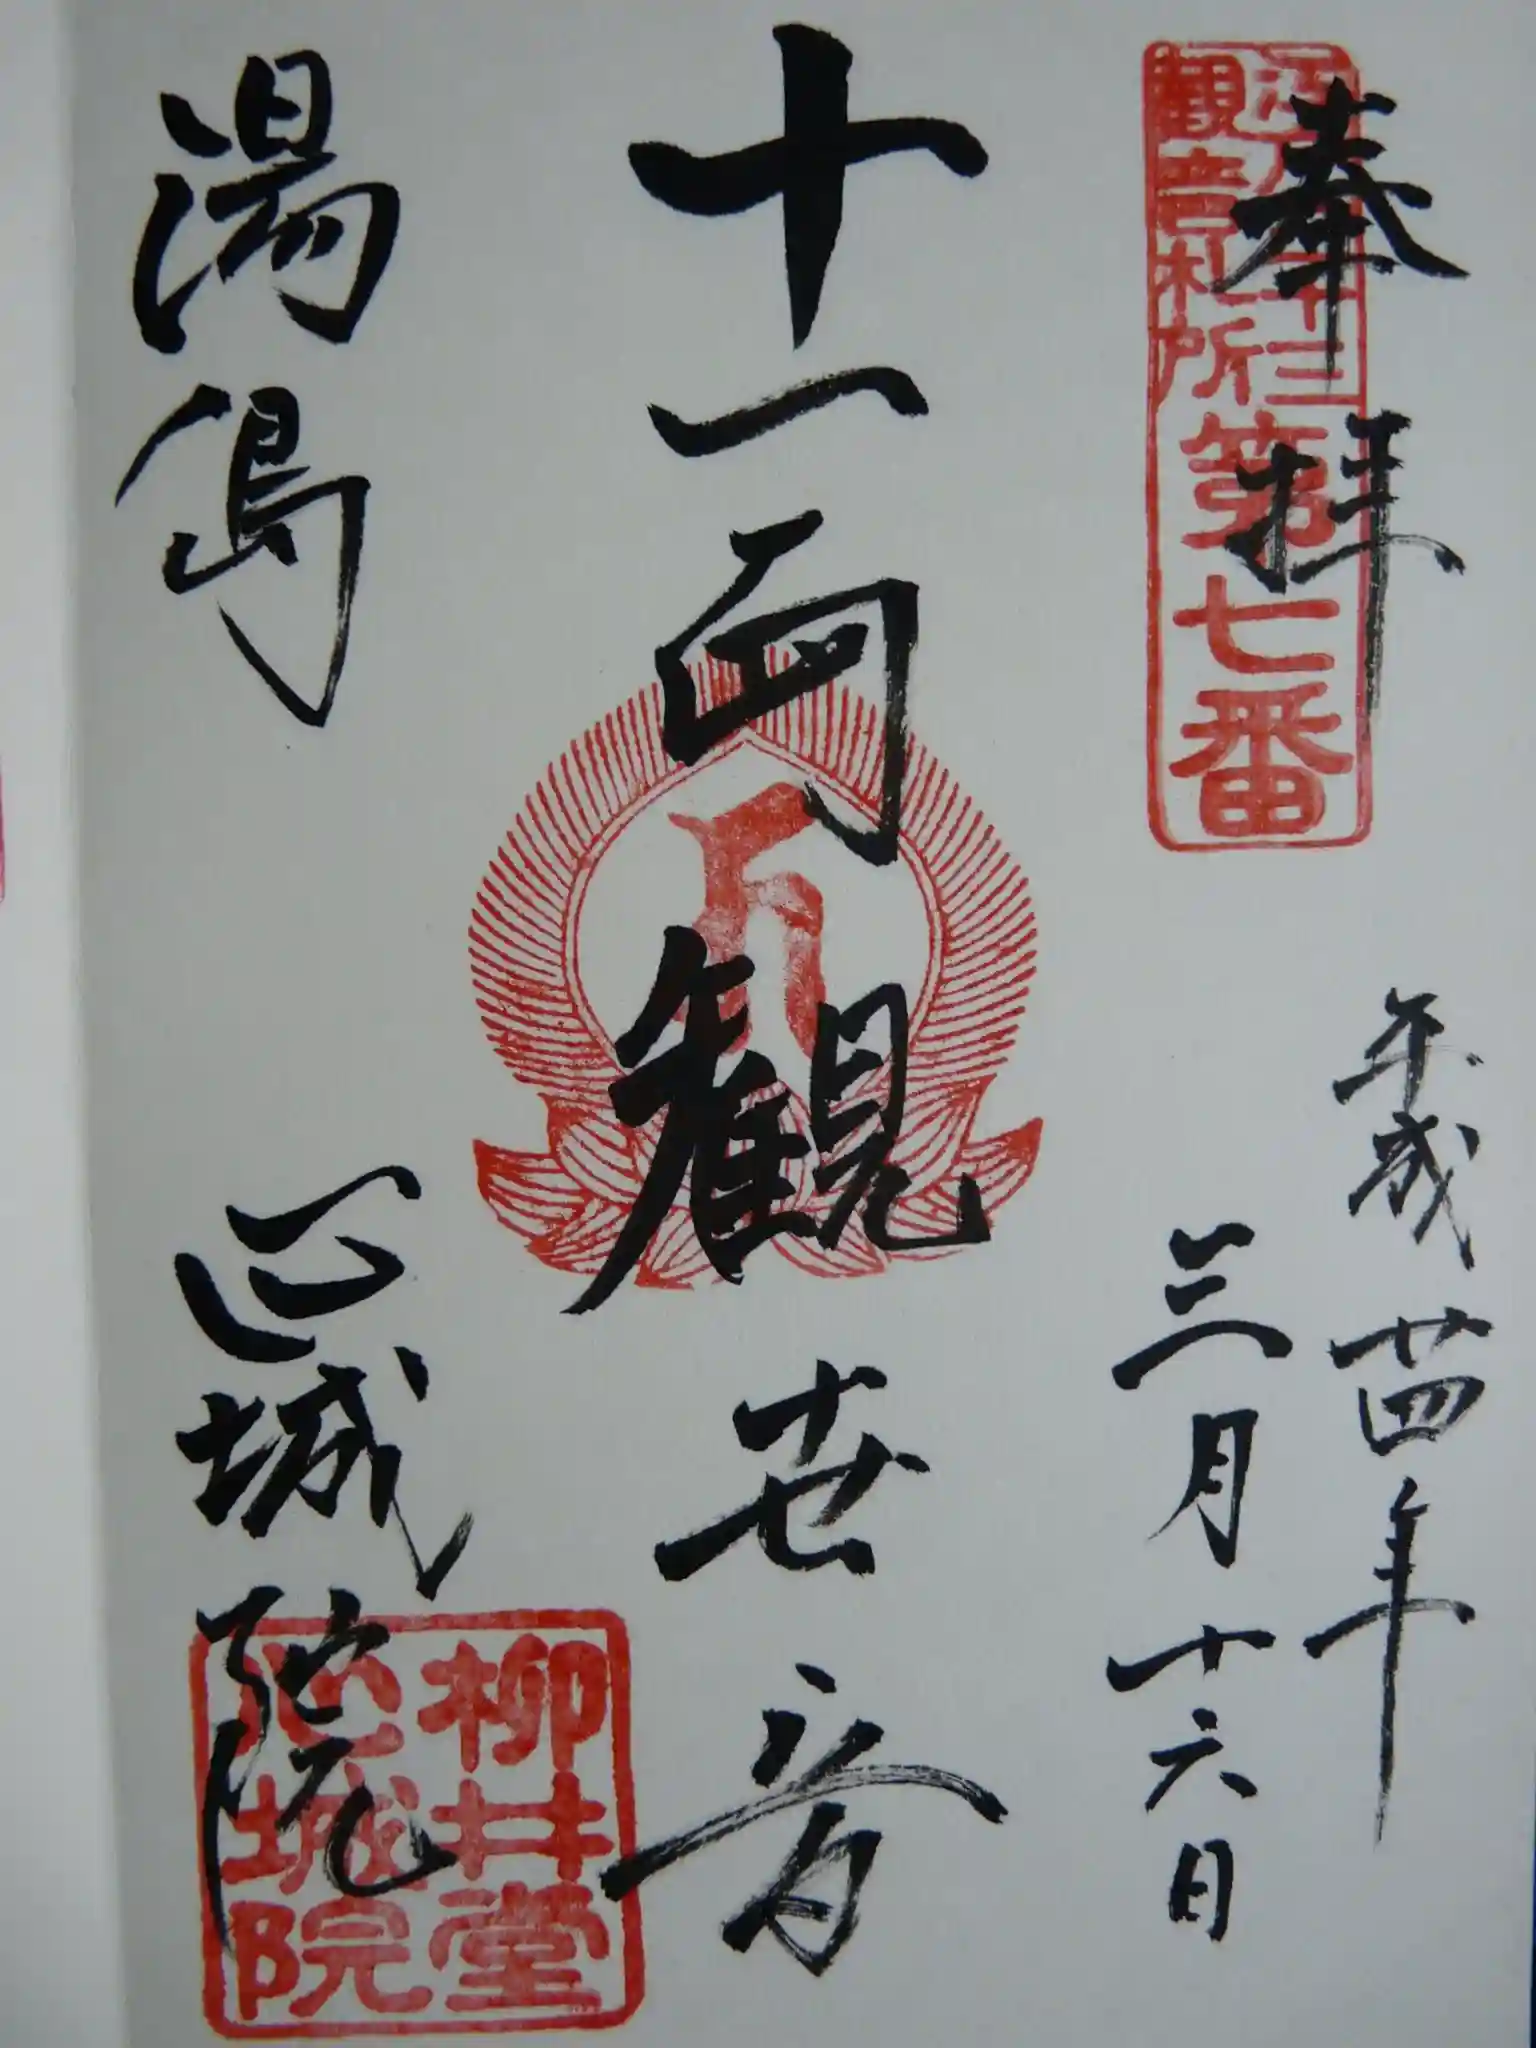 奉拝
江戸三十三
観音札所
第七番
平成廿四年
三月十六日
十一面観世音
湯島 心城院
柳井堂
心城院